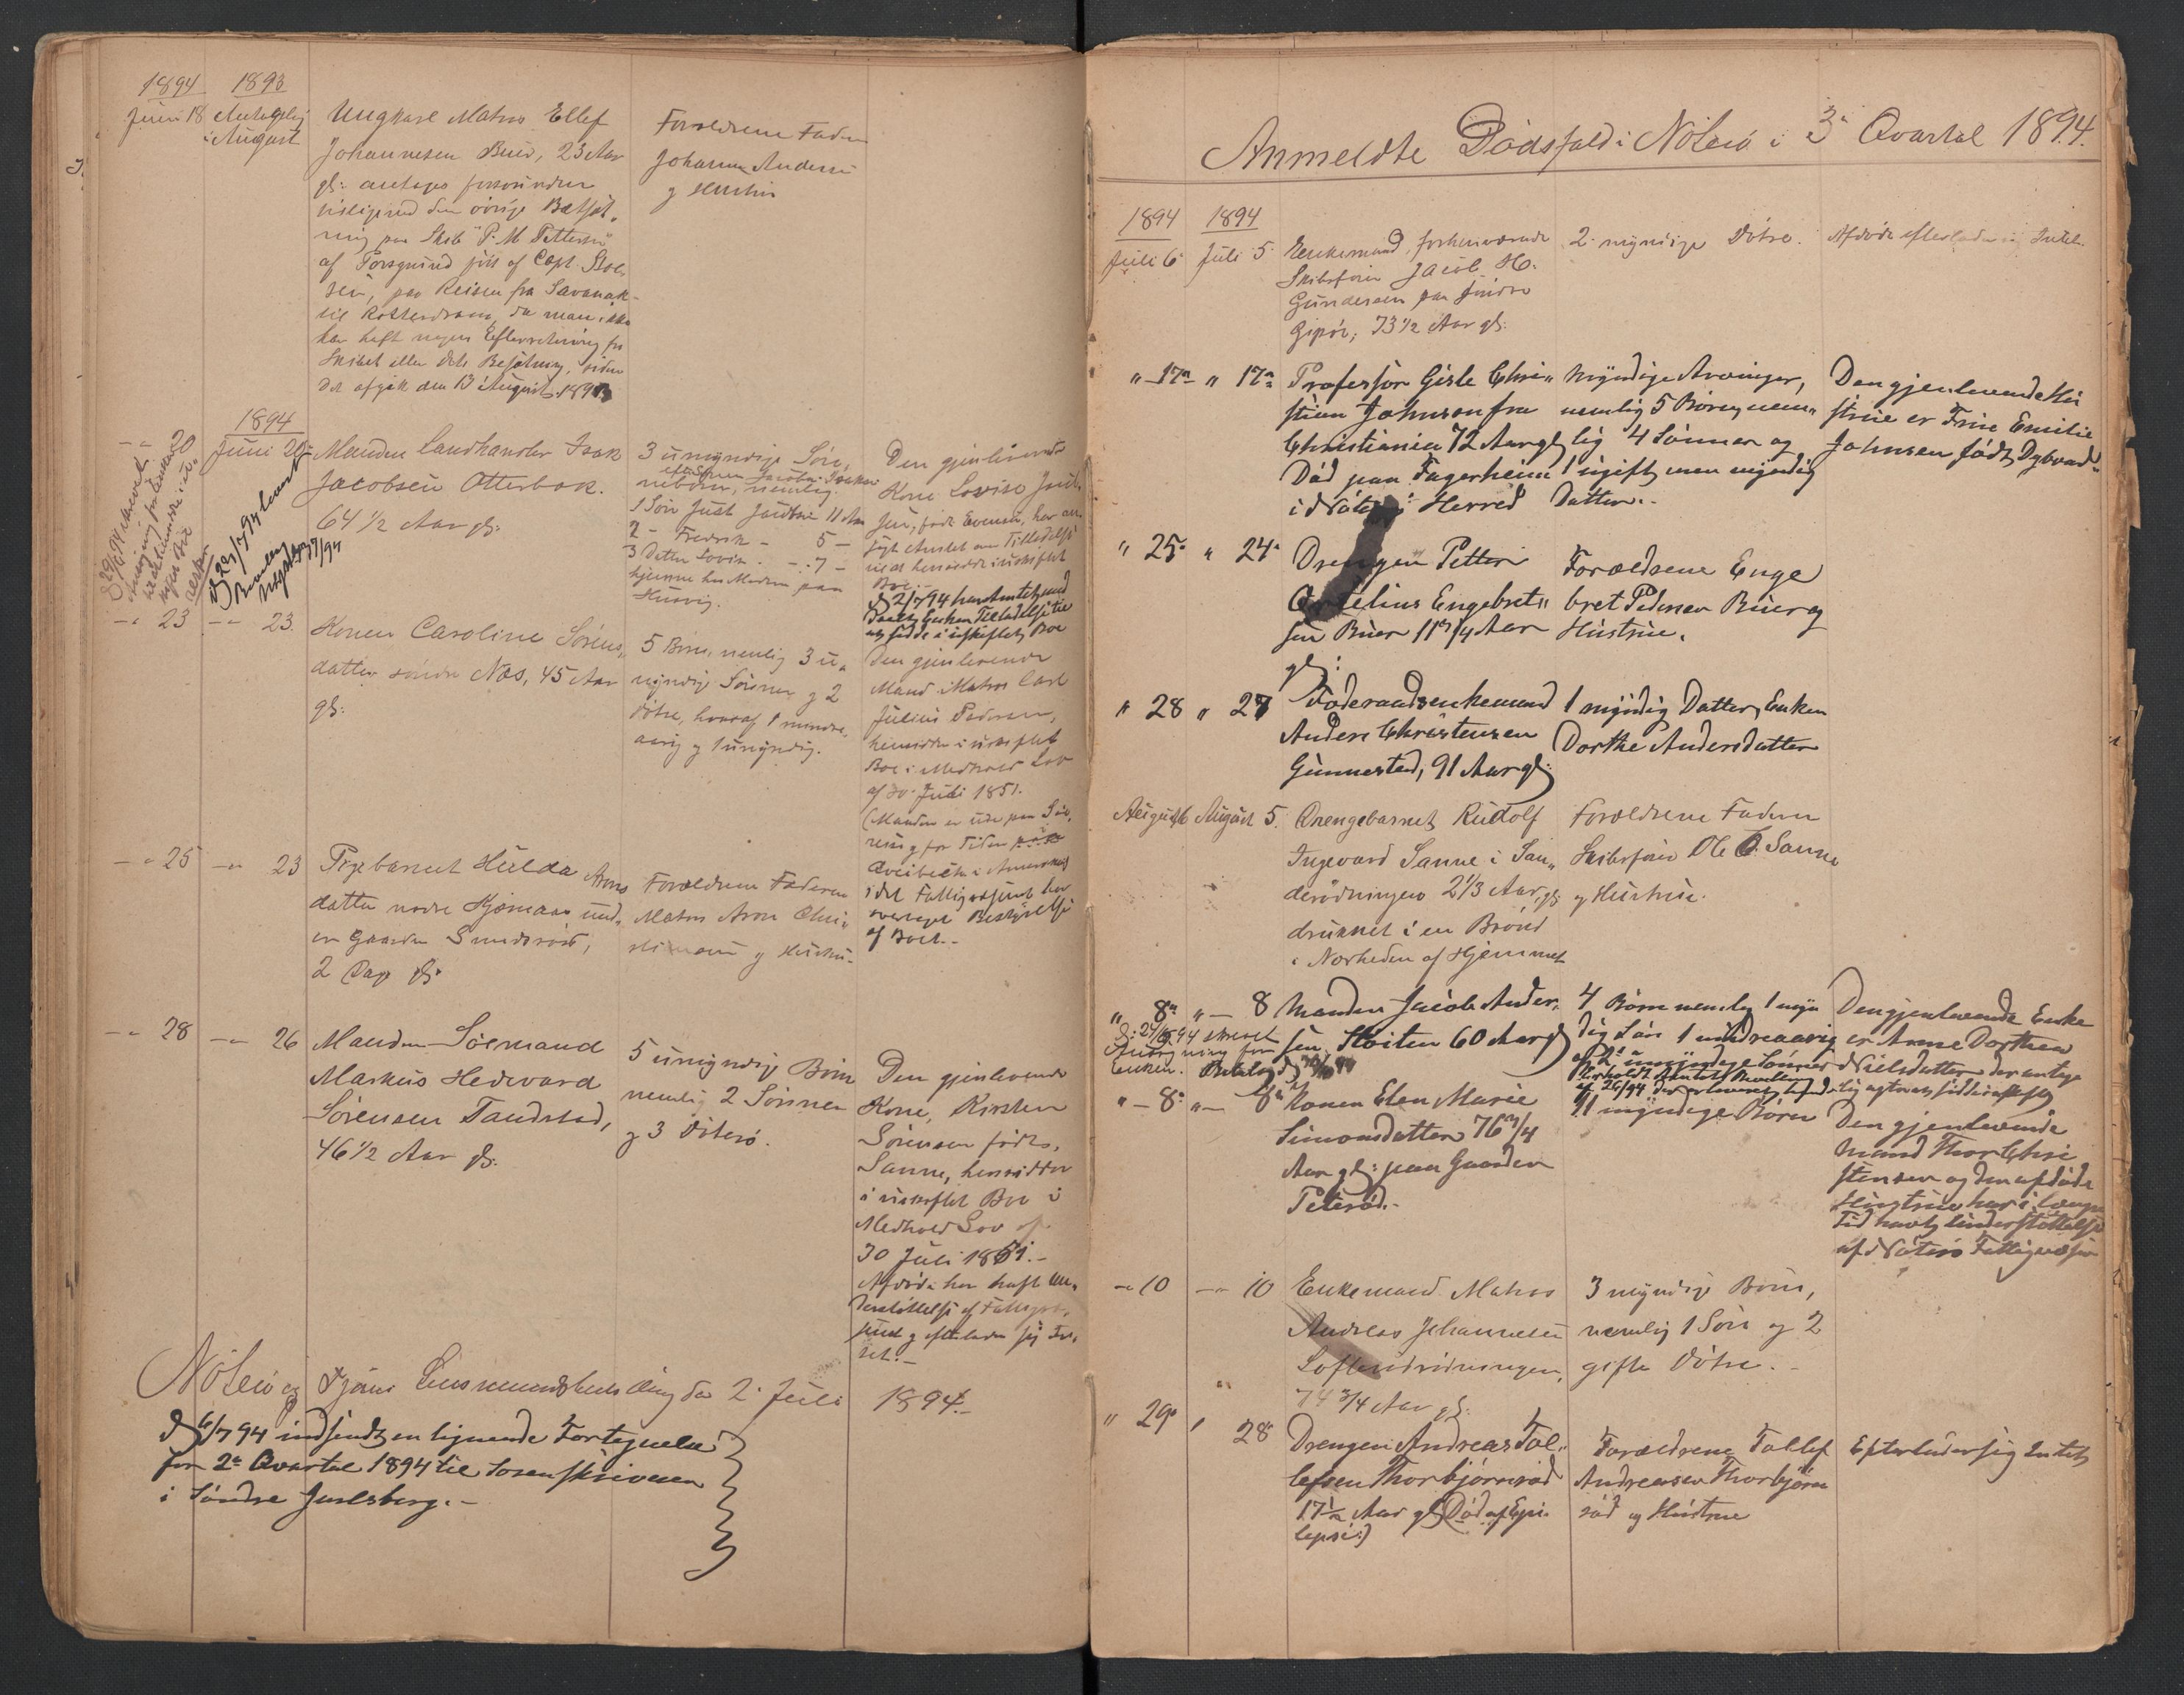 1894 1893
Juni 18 Antagelig
i August
Ungkarl Matros Ellef
Johannesen Buer, 23 Aar
gl: antages
den øvrige Besæt-
ning paa Skib "P. M. Petterson"
af Porsgrund ført af Capt.
paa Reisen fra Savanah
til Rotterdam, da man ikke
har haft nogen Efterretning fra
Skibet eller dets Besætning, siden
det afgik den 13 August 1893
Forældrene Faderen
Johannes Andersen
og Hustru
1894
20 Juni 20
Manden Landhandler Isak
Jacobsen Otterbæk.
64 1/2 Aar gl:
3 umyndige
nemlig
1 Søn Just Jacobsen 11 Aar
2 - Fredrik - 5 -
3 Datter Lovise - 7 -
hjemme hos Moderen paa
Husvig.
Den gjenlevende
Kone Lovise
født Evensen, har an-
søgt Amtet om Tilladelse
til at hensidde i uskiftet
Boe.-
D 2/7 94 har Amtet
Enken Tilladelse til
at sidde i uskiftet Boe
- 23 - 23.
Konen Caroline Sørens-
datter søndre Næs, 45 Aar
gl:
5 Børn, nemlig 3 u-
myndige Sønner og 2
Døtre, hvoraf 1 mindre-
aarig og 1 umyndig.
Den gjenlevende
Mand Matros Carl
Julius Pedersen,
hensidder i uskiftet
Boe i Medhold Lov
af 30 Juli 1851.
(Manden er ude paa
for Tiden
i Amerika
idet Fattigvæsenet har
overtaget Bestyrelse
af Boet.-
- 25 - 23
Pigebarnet Hulda Arons
datter nedre Kjernaas und-
er Gaarden Smidsrød,
2 Dage gl:
Forældrene Faderen
Matros Aron Chri-
stiansen og Hustru.
- 28 - 26
Manden Sømand
Markus Hedevard
Sørensen Tandstad,
46 1/2 Aar gl:
5 umyndige Børn
nemlig 2 Sønner
og 3 Døtre.
Den gjenlevende
Kone, Kirsten
Sørensen født
Sanne, hensidder
i uskiftet Boe i
Medhold Lov af
30 Juli 1851.-
Afdøde har haft Un-
derstøttelse af Fattigvæ-
senet og efterlader sig In-
tet.-
Nøterø og Tjømø Lensmandsbestilling den 2 Juli 1894.-
D 6/7 94 indsendt en lignende Fortegnelse
for 2t Qvartal 1894 til Sorenskriveren
i Søndre Jarlsberg.-
Anmeldte Dødsfald i Nøterø i 3die Qvartal 1894.
1894 1894
Juli 6 Juli 5
Enkemand, forhenværende
Skibsfører Jacob H.
Gundersen paa Søndre
Gipø, 73 1/2 Aar gl:
2 myndige Døtre.
Afdøde efterlader sig Intet.
" 17de " 17de
Professor Gisle Chri-
stian Johnson fra
Christiania 72 Aar gl
Død paa Fagerheim
i Nøterø Herred
Myndige Arvinger,
nemlig 5 Børn, nem-
lig 4 Sønner og
1 ugift, men myndig
Datter.-
Den gjenlevende Hu
strue er Frue Emilie
Johnson født Dybvad-
" 25 " 24
Drengen Petter
Ortelius Engebret-
sen Buer 11 3/4 Aar
gl:
Forældrene Enge
bret Pedersen Buer og
Hustrue.
" 28 " 27
Føderaadsenkemand
Anders Christensen
Gunnestad, 91 Aar gl:
1 myndig Datter, Enken
Dorthe Andersdatter
August 6 August 5.
Drengebarnet Rudolf
Ingevard Sanne i San-
derødningen 2 1/3 Aar gl:
druknet i en Brønd
i Nærheden af Hjemmet
Forældrene Faderen
Skibsfører Ole O. Sanne
og Hustrue.
" 8 " - 8
Manden Jacob Ander-
sen Stoiten 60 Aar gl
4 Børn nemlig 1 myn
dig Søn 1 mindreaarig
og 2 umyndige Sønner
Den gjenlevende Enke
er Anne Dorthea
Nielsdatter der antage
" - 8 " - 8
Konen Elen Marie
Simonsdatter 76 3/4
Aar gl: paa Gaarden
Peterød.-
11 myndige Børn
Den gjenlevende
Mand Thor Chri
stensen og den afdøde
Hustrue har i længere
Tid havt Understøttelse
af Nøterø Fattigvæsen
- 10 - 10
Enkemand Matros
Andreas Johannesen
74 3/4 Aar gl:
3 myndige Børn,
nemlig 1 Søn og 2
gifte Døtre.-
" 29 " 28
Drengen Andreas Tol-
lefsen Thorbjørnsrød
17 1/2 Aar gl (Død af Epi-
lepsi)
Forældrene Tollef
Andreassen Thorbjørns
rød og Hustrue
Efterlader sig Intet